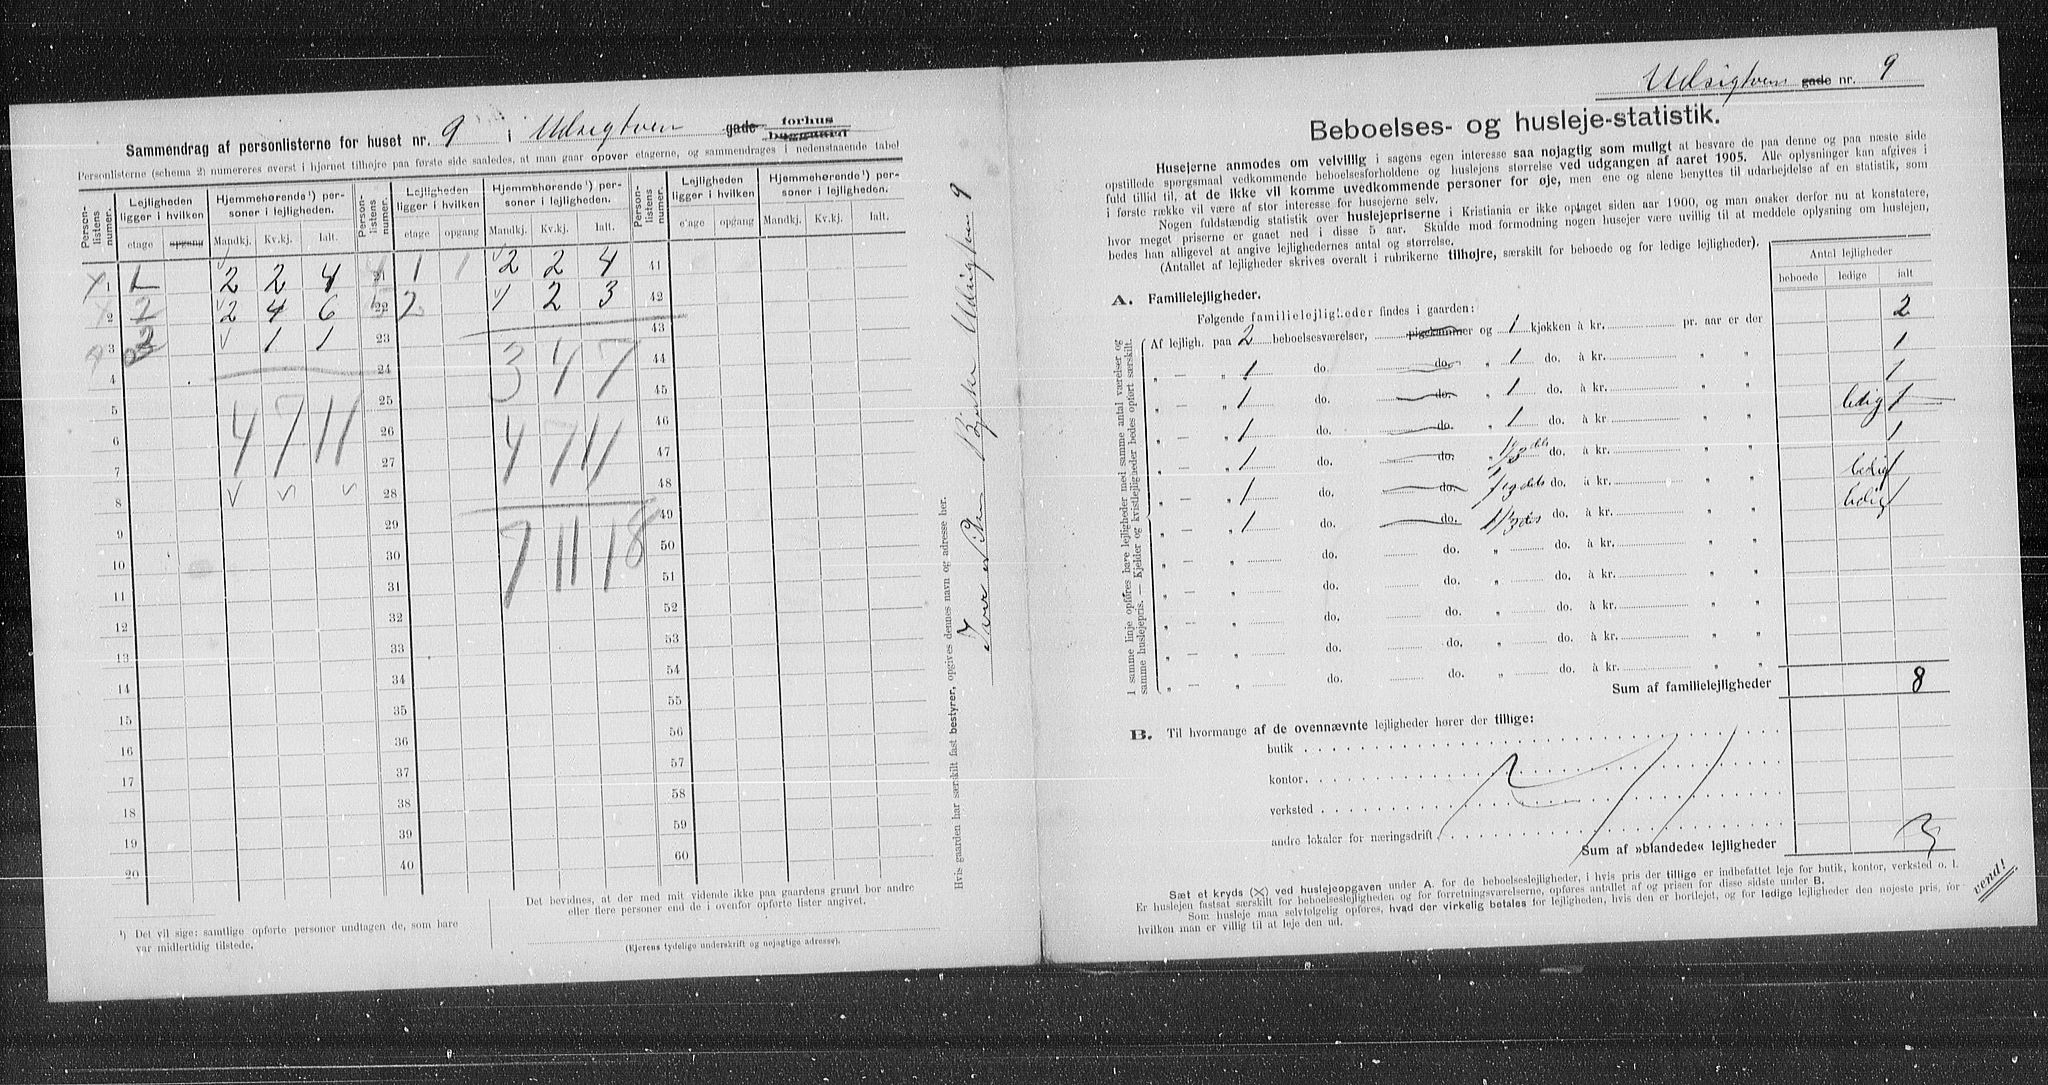 Sammendrag af personlisterne for huset nr. 9 i Udsigtven gade forhus
baggaard
Personlisterne (schema 2) numereres øverst i hjørnet tilhøjre paa første side saaledes, at man gaar opover etagerne, og sammendrages i nedenstaaende tabel
Person-listens numer. Lejligheden ligger i hvilken Hjemmehørende¹) personer i lejligheden. Person-listens numer. Lejligheden ligger i hvilken Hjemmehørende¹) personer i lejligheden. Person-listens numer. Lejligheden ligger i hvilken Hjemmehørende¹) personer i lejligheden.
etage opgang Mandkj. Kv.kj. Ialt. etage opgang Mandkj. Kv.kj. Ialt. etage opgang Mandkj. Kv.kj. Ialt.
1 1 2 2 4 21 1 1 2 2 4 41
2 2 2 4 6 22 2 1 2 3 42
3 2 1 1 23 43
4 24 3 4 7 44
5 25 45
6 4 7 11 26 4 7 11 46
7 27 47
8 28 48
9 29 7 11 18 49
10 30 50
11 31 51
12 32 52
13 33 53
14 34 54
15 35 55
16 36 56
17 37 57
18 38 58
19 39 59
20 40 60
¹) Det vil sige: samtlige opførte personer undtagen de, som bare
var midlertidig tilstede.
Det bevidnes, at der med mit vidende ikke paa gaardens grund bor andre
eller flere personer end de i ovenfor opførte lister angivet.
(Ejerens tydelige underskrift og nøjagtige adresse).
Hvis gaarden har særskilt fast bestyrer, opgives dennes navn og adresse her.
Udsigtven 9
Udsigtven gade nr. 9
Beboelses- og husleje-statistik.
Husejerne anmodes om velvillig i sagens egen interesse saa nøjagtig som muligt at besvare de paa denne og paa næste side
opstillede spørgsmaal vedkommende beboelsesforholdene og huslejens størrelse ved udgangen af aaret 1905. Alle oplysninger kan afgives i
fuld tillid til, at de ikke vil komme uvedkommende personer for øje, men ene og alene benyttes til udarbejdelse af en statistik, som
i første række vil være af stor interesse for husejerne selv.
Nogen fuldstændig statistik over huslejepriserne i Kristiania er ikke optaget siden aar 1900, og man ønsker derfor nu at konstatere,
hvor meget priserne er gaaet ned i disse 5 aar. Skulde mod formodning nogen husejer være uvillig til at meddele oplysning om huslejen,
bedes han alligevel at angive lejlighedernes antal og størrelse.
(Antallet af lejligheder skrives overalt i rubrikerne tilhøjre, særskilt for beboede og for ledige lejligheder).
Antal lejligheder
beboede ledige ialt
A. Familielejligheder.
Følgende familielejligheder findes i gaarden:
I samme linje opføres bare lejligheder med samme antal værelser og
samme huslejepris. — Kjelder og kvistlejligheder bedes opført særskilt.
Af lejligh. paa 2 beboelsesværelser, pigekammer og 1 kjøkken à kr. pr. aar er der 2
„ — „ 1 do. do. „ 1 do. à kr. „ „ 1
„ — „ 1 do. do. „ 1 do. à kr. „ „ 1
„ — „ 1 do. do. „ 1 do. à kr. „ „ ledig 1
„ — „ 1 do. do. „ 1/3 dels do. à kr. „ „ 1
„ — „ 1 do. do. „ 1/3 dels do. à kr. „ „ ledig 1
„ — „ 1 do. do. „ 1/3 dels do. à kr. „ „ ledig 1
„ — „ do. do. „ do. à kr. „ „
„ — „ do. do. „ do. à kr. „ „
„ — „ do. do. „ do. à kr. „ „
„ — „ do. do. „ do. à kr. „ „
„ — „ do. do. „ do. à kr. „ „
Sum af familielejligheder 8
B. Til hvormange af de ovennævnte lejligheder hører der tillige:
butik
kontor
verksted
andre lokaler for næringsdrift
Sum af »blandede« lejligheder
Sæt et kryds (X) ved huslejeopgaven under A. for de beboelseslejligheder, i hvis pris der tillige er indbefattet leje for butik, kontor, verksted o. l.
Er huslejen fastsat særskilt for beboelseslejligheden og for forretningsværelserne, opføres antallet af og prisen for disse sidste under B.
Som husleje maa selvfølgelig opføres, hvad der virkelig betales for lejligheden, hvis den er bortlejet, og for ledige lejligheder den nøjeste pris, for
hvilken man er villig til at leje den ud.
vend!